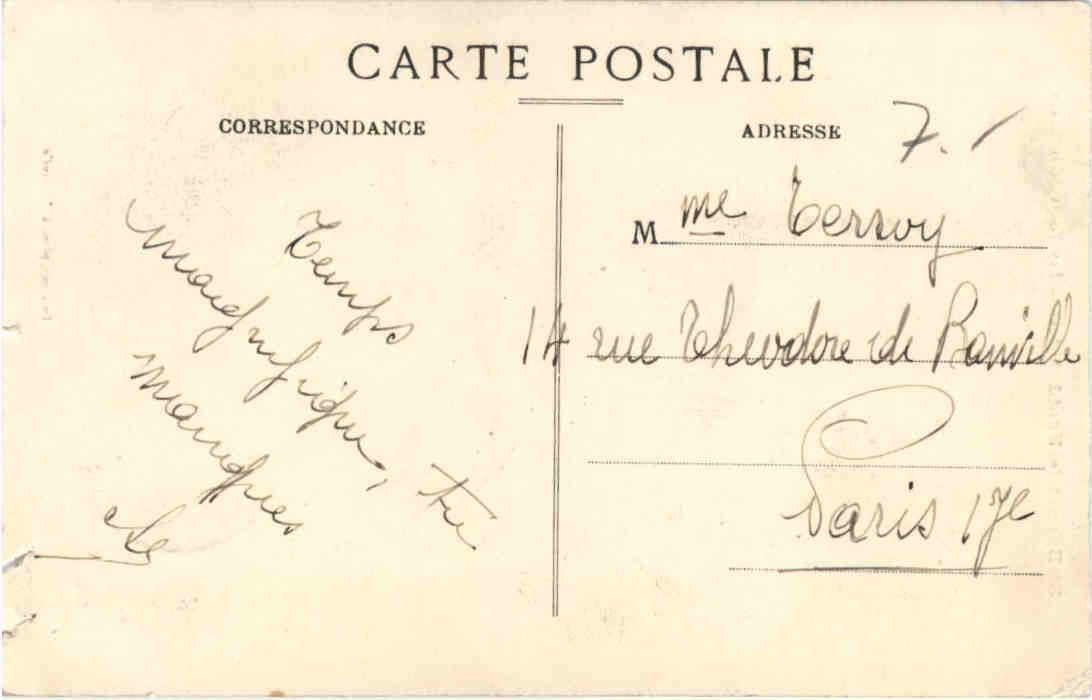 CARTE POSTALE
CORRESPONDANCE
ADRESSE
7.
Mme Terroy
14 rue Theodore de Banville
Paris 17e
Temps
magnifique, tu
manques